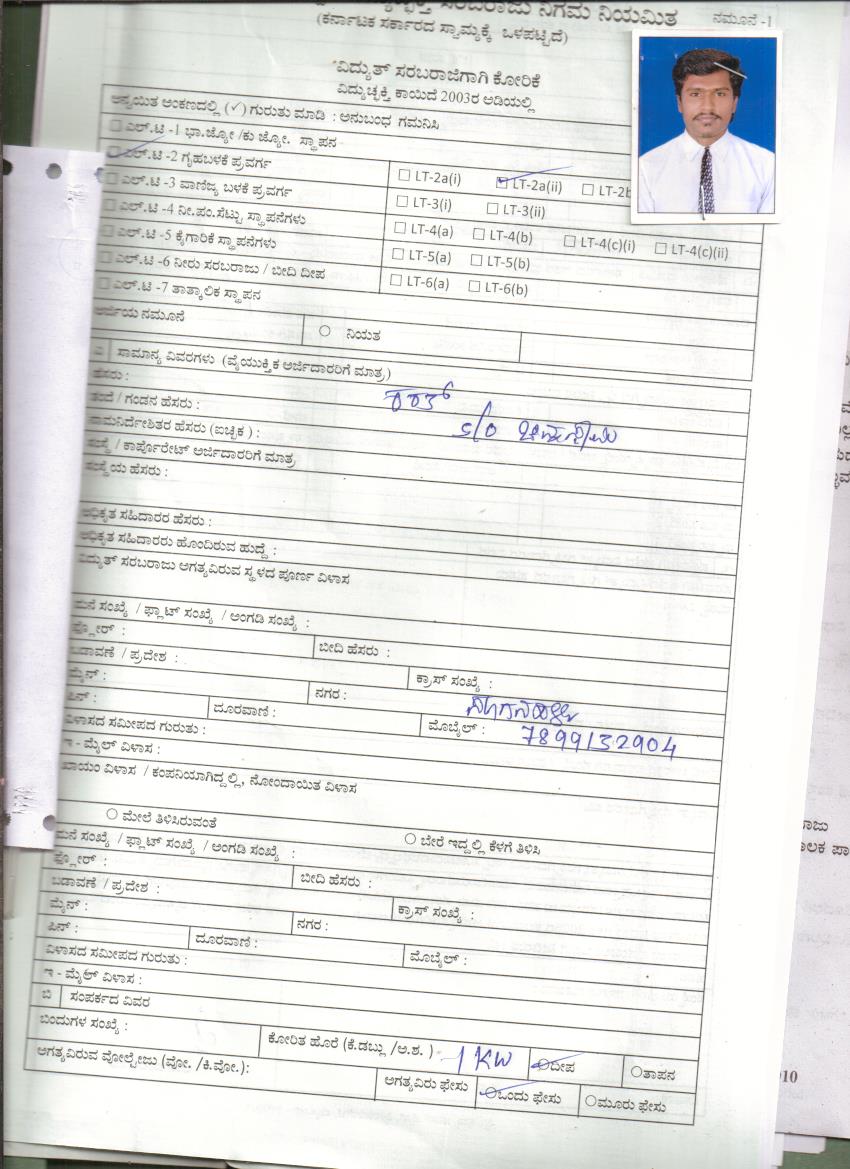 ಸರಬರಾಜು ನಿಗಮ ನಿಯಮಿತ ನಮೂನೆ -1
(ಕರ್ನಾಟಕ ಸರ್ಕಾರದ ಸ್ವಾಮ್ಯಕ್ಕೆ ಒಳಪಟ್ಟಿದೆ)
ವಿದ್ಯುತ್ ಸರಬರಾಜಿಗಾಗಿ ಕೋರಿಕೆ
ವಿದ್ಯುಚ್ಛಕ್ತಿ ಕಾಯಿದೆ 2003ರ ಅಡಿಯಲ್ಲಿ
ಅನ್ವಯಿತ ಅಂಕಣದಲ್ಲಿ (✓) ಗುರುತು ಮಾಡಿ : ಅನುಬಂಧ ಗಮನಿಸಿ
ಎಲ್.ಟಿ -1 ಭಾ.ಜ್ಯೋ /ಕು ಜ್ಯೋ. ಸ್ಥಾಪನ
ಎಲ್.ಟಿ -2 ಗೃಹಬಳಕೆ ಪ್ರವರ್ಗ LT-2a(i) LT-2a(ii) LT-2b
ಎಲ್.ಟಿ -3 ವಾಣಿಜ್ಯ ಬಳಕೆ ಪ್ರವರ್ಗ LT-3(i) LT-3(ii)
ಎಲ್.ಟಿ -4 ನೀ.ಪಂ.ಸೆಟ್ಟು ಸ್ಥಾಪನೆಗಳು LT-4(a) LT-4(b) LT-4(c)(i) LT-4(c)(ii)
ಎಲ್.ಟಿ -5 ಕೈಗಾರಿಕೆ ಸ್ಥಾಪನೆಗಳು LT-5(a) LT-5(b)
ಎಲ್.ಟಿ -6 ನೀರು ಸರಬರಾಜು / ಬೀದಿ ದೀಪ LT-6(a) LT-6(b)
ಎಲ್.ಟಿ -7 ತಾತ್ಕಾಲಿಕ ಸ್ಥಾಪನ
ಅರ್ಜಿಯ ನಮೂನೆ ನಿಯತ
ಎ ಸಾಮಾನ್ಯ ವಿವರಗಳು (ವೈಯುಕ್ತಿಕ ಅರ್ಜಿದಾರರಿಗೆ ಮಾತ್ರ)
ಹೆಸರು :
ತಂದೆ / ಗಂಡನ ಹೆಸರು : s/o
ನಾಮನಿರ್ದೇಶಿತರ ಹೆಸರು (ಐಚ್ಛಿಕ) :
ಸಂಸ್ಥೆ / ಕಾರ್ಪೊರೇಟ್ ಅರ್ಜಿದಾರರಿಗೆ ಮಾತ್ರ
ಸಂಸ್ಥೆಯ ಹೆಸರು :
ಅಧಿಕೃತ ಸಹಿದಾರರ ಹೆಸರು :
ಅಧಿಕೃತ ಸಹಿದಾರರು ಹೊಂದಿರುವ ಹುದ್ದೆ :
ವಿದ್ಯುತ್ ಸರಬರಾಜು ಅಗತ್ಯವಿರುವ ಸ್ಥಳದ ಪೂರ್ಣ ವಿಳಾಸ
ಮನೆ ಸಂಖ್ಯೆ / ಫ್ಲಾಟ್ ಸಂಖ್ಯೆ / ಅಂಗಡಿ ಸಂಖ್ಯೆ :
ಫ್ಲೋರ್ : ಬೀದಿ ಹೆಸರು :
ಬಡಾವಣೆ / ಪ್ರದೇಶ :
ಮೈನ್ : ಕ್ರಾಸ್ ಸಂಖ್ಯೆ :
ನಗರ :
ಪಿನ್ : ದೂರವಾಣಿ : ಮೊಬೈಲ್ : 7899132904
ವಿಳಾಸದ ಸಮೀಪದ ಗುರುತು :
ಇ - ಮೈಲ್ ವಿಳಾಸ :
ಖಾಯಂ ವಿಳಾಸ / ಕಂಪನಿಯಾಗಿದ್ದಲ್ಲಿ, ನೋಂದಾಯಿತ ವಿಳಾಸ
ಮೇಲೆ ತಿಳಿಸಿರುವಂತೆ ಬೇರೆ ಇದ್ದಲ್ಲಿ ಕೆಳಗೆ ತಿಳಿಸಿ
ಮನೆ ಸಂಖ್ಯೆ / ಫ್ಲಾಟ್ ಸಂಖ್ಯೆ / ಅಂಗಡಿ ಸಂಖ್ಯೆ :
ಫ್ಲೋರ್ : ಬೀದಿ ಹೆಸರು :
ಬಡಾವಣೆ / ಪ್ರದೇಶ :
ಮೈನ್ : ಕ್ರಾಸ್ ಸಂಖ್ಯೆ :
ನಗರ :
ಪಿನ್ : ದೂರವಾಣಿ : ಮೊಬೈಲ್ :
ವಿಳಾಸದ ಸಮೀಪದ ಗುರುತು :
ಇ - ಮೈಲ್ ವಿಳಾಸ :
ಬಿ ಸಂಪರ್ಕದ ವಿವರ
ಬಿಂದುಗಳ ಸಂಖ್ಯೆ : ಕೋರಿತ ಹೊರೆ (ಕೆ.ಡಬ್ಲು /ಅ.ಶ. ) 1 KW ದೀಪ ತಾಪನ
ಅಗತ್ಯವಿರುವ ವೋಲ್ಟೇಜು (ವೋ. /ಕಿ.ವೋ.): ಅಗತ್ಯವಿರು ಫೇಸು ಒಂದು ಫೇಸು ಮೂರು ಫೇಸು